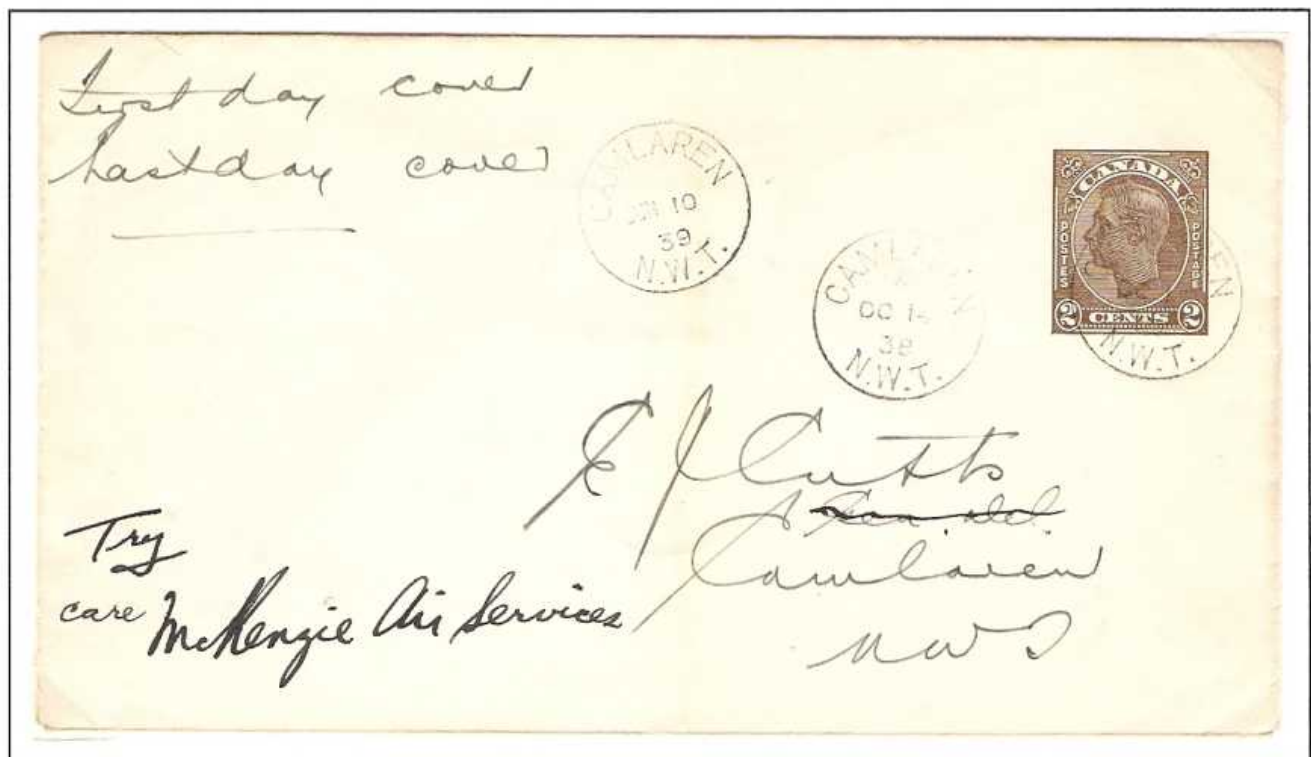 First day cover
Last day cover
CAMLAREN
JUN 10
39
N.W.T.
CAMLAREN
OC 14
38
N.W.T.
CANADA
POSTES
POSTAGE
2 CENTS 2
EN
N.W.T.
E J Cutts
Gen. del.
Camlaren
NWT
Try
care McKenzie Air Services